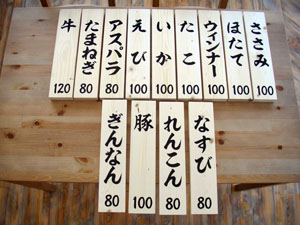 牛 120
たまねぎ 80
アスパラ 80
えび 100
いか 100
たこ 100
ウィンナー 100
ほたて 100
ささみ 100
ぎんなん 80
豚 100
れんこん 80
なすび 80